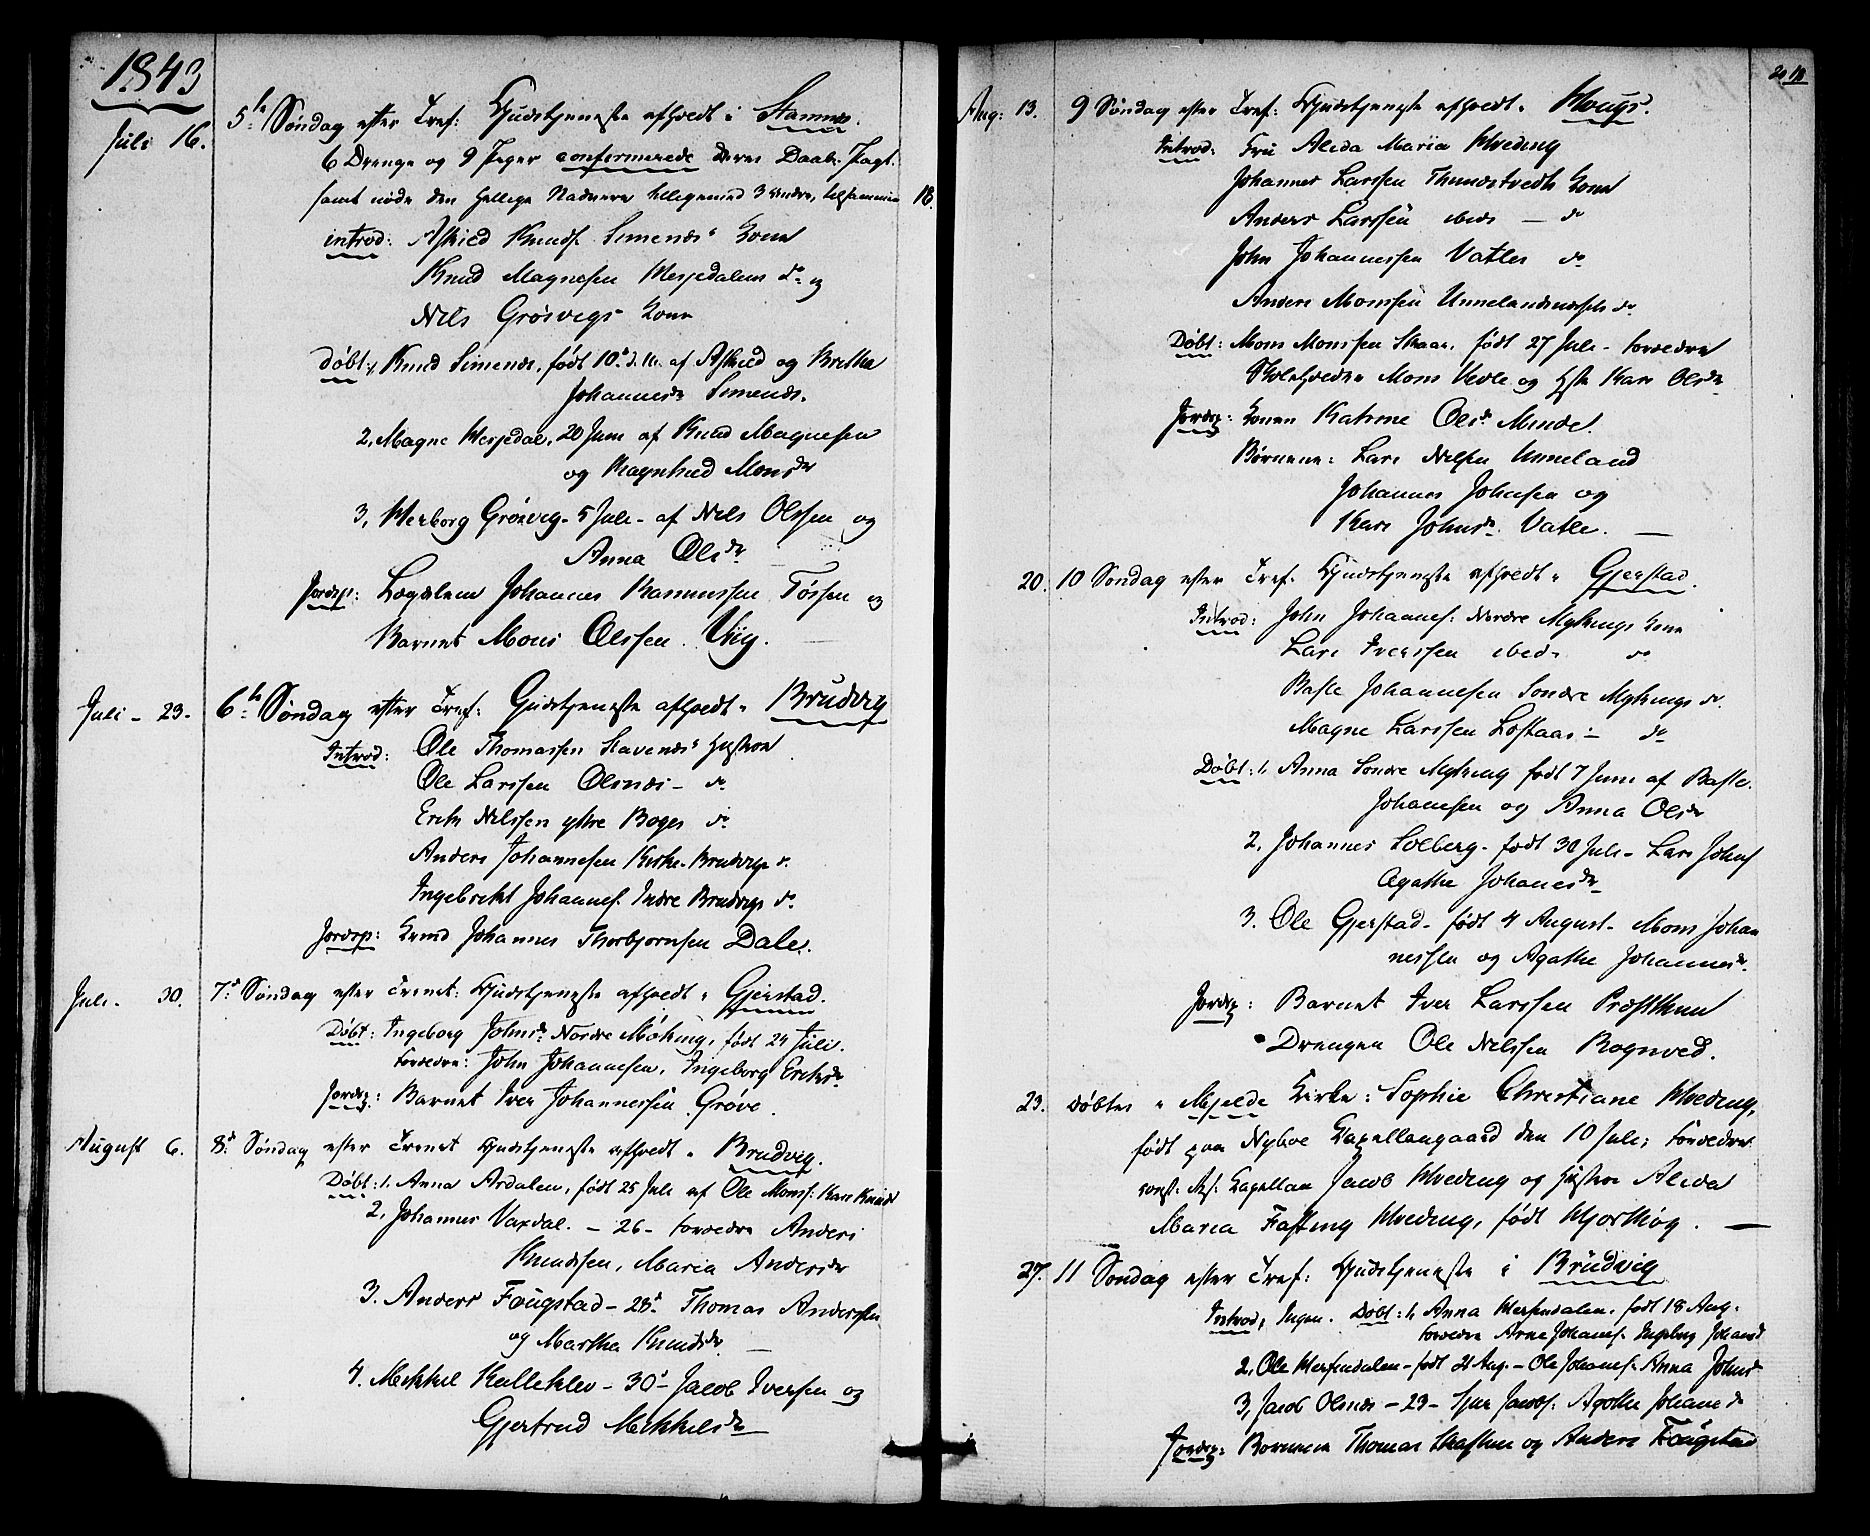 1843
Juli 16. 5te Søndag efter Tref: Gudstjeneste afholdt i Stamnes.
6 Drenge og 9 Piger confirmerede deres Daabs Pagt.
samt nøde den hellige Nadvere tilligemed 3 andre, tilsammen 18.
introd: Knuds. Simenes' Kone
Knud Magnesen Hesjedalens do og
Nils Grøsvegs Kone
døbt: 1. Knud Simenes, født 10d. af og Britha
Johannesdr Simenes.
2, Magne Hesjedal, 20 Juni af Knud Magnesen
og Ragnhild Monsdr
3, Herborg Grøsveg - 5 Juli - af Nils Olssen og
Anna Olsdr
Jordsp: Johannes Rasmussen Tøssen og
Barnet Mons Olssen Viig.
Juli - 23. 6te Søndag efter Tref: Gudstjeneste afholdt i Brudvig
Introd: Ole Thomassen Stavenes' Hustrue
Ole Larssen Olsnes - do
Erik Nilssen ytre Boges do
Anders Johannesen Kirke-Brudvigs d.
Ingebrekt Johannes. Indre Brudvigs do.
Jordsp: Johannes Thorbjørnsen Dale.
Juli - 30. 7d Søndag efter Trinit: Gudstjeneste afholdt i Gjerstad.
Døbt: Ingeborg Johnsdr Nordre født 24 Juli.
Forældre: John Johannesen, Ingeborg Eriksdr
Jordsp: Barnet Iver Johannessen Grøve.
August 6. 8d Søndag efter Trinit Gudstjeneste afholdt i Brudvig.
Døbt: 1. Anna Ardalen, født 25 Juli af Ole Monss: Kari Knudsd
2, Johannes Vaxdal. - 26 - Forældre Anders
Knudssen, Maria Andersdr
3. Anders Fougstad - 28d Thomas Anderssen
og Martha Knudsdr
4. Mikkel Kalleklev - 30d Jacob Iversen og
Gjertrud Mikkelsdr
Aug: 13. 9 Søndag efter Tref: Gudstjeneste afholdt i Hougs.
Introd: Fru Alida Maria Hveding
Johannes Larssen Thunestvedts Kone
Anders Larssen ibids - do
John Johannessen Vatles do
Anders Monssen do
Døbt: Mons Monssen Skaar, født 27 Juli - Forældre
Mons Vedle og Kari Olsdr
Jordsp: Konen Katrine Olsdr Minde.
Børnene: Lars Nilssen Unneland
Johannes Johnsen og
Kari Johnsdr Vatle. -
20. 10 Søndag efter Tref. Gudstjeneste afholdt i Gjerstad.
Introd: John Johannes: Nordre Mykings Kone
Lars Iverssen ibeds do
Johannesen Søndre Mykings do.
Magne Larssen Loftaas: - do
Døbt: 1. Anna Søndre Myking født 7 Juni af
Johannesen og Anna Olsdr
2, Johannes Solberg - født 30 Juli - Lars Johns
Agathe Johannesdr
3. Ole Gjerstad - født 4 August - Mons Johan
nessen og Agathe Johannesdr.
Jordsp: Barnet Iver Larssen Præsthun
Drengen Ole Nilssen Rognved.
23. døbtes i Mjelde Kirke: Sophie Christiane Hveding,
født paa Nyboe Capellangaard den 10 Juli; Forældre
Capellan Jacob Hveding og Hustrue Alida
Maria Fasting Hveding, født Hjorthøg. -
27. 11 Søndag efter Tref: Gudstjeneste i Brudvig
Introd, Ingen. Døbt: 1, Anna født 18 Aug.
Forældre Arne Johannes. Ingeborg Johansd
2, Ole - født 21 Aug. - Ole Johannes. Anna Johnsd
3, Jacob Olsnes - 23 - Jacobs. Agathe Johannesd
Jordsp: Børnene Thomas og Anders Fougstad